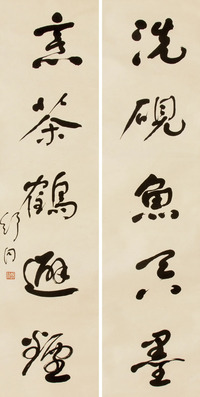 洗硯魚吞墨
烹茶鶴避煙
舒同